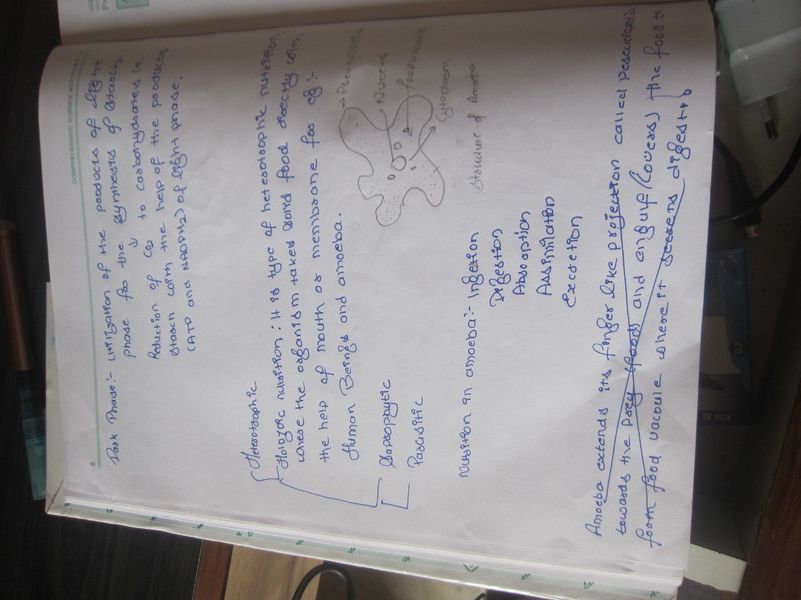 COMPREHENSIVE SCIENCE ACTIVITIES
Dark Phase:- Utilization of the products of light
phase for the synthesis of starch.
Reduction of CO2 to carbohydrates ie
↓
starch with the help of the products
(ATP and NADPH2) of light phase.
Heterotrophic
Holozoic nutrition: It is type of heterotrophic nutrition
where the organism takes solid food directly with
the help of mouth or membrane for eg:-
Human Beings and amoeba.
Saprophytic
Parasitic
Nucleus
food vacuole
Cytoplasm
Structure of Amoeba
Nutrition in amoeba:- Ingestion
Digestion
Absorption
Assimilation
Excretion
Amoeba extends its finger like projection called
towards the prey (food) and engulf (covers) the food to
form food vacuole where it digestio
12 PCS
07